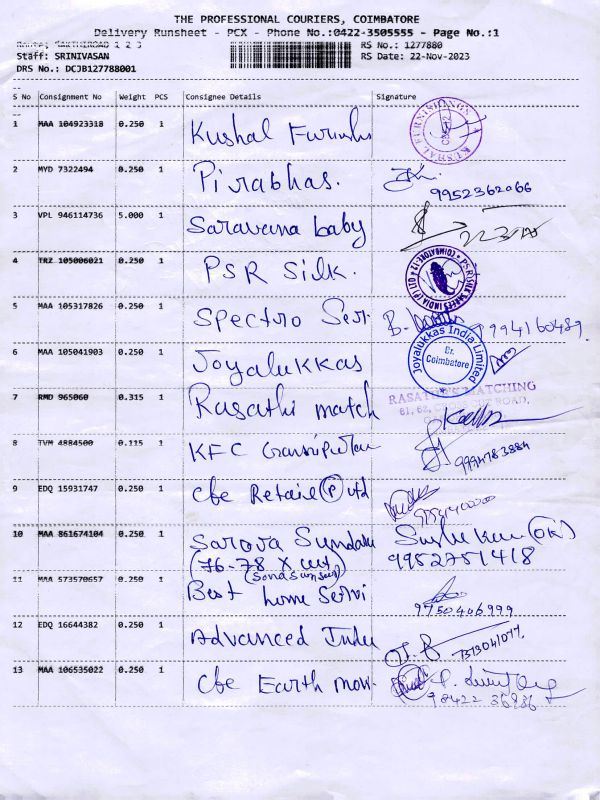 THE PROFESSIONAL COURIERS, COIMBATORE
Delivery Runsheet - PCX - Phone No.:0422-3505555 - Page No.:1
Staff: SRINIVASAN
DRS No.: DCJB127788001
RS No.: 1277880
RS Date: 22-Nov-2023
S No Consignment No Weight PCS Consignee Details Signature
1 MAA 104923318 0.250 1 Kushal Furnishi
KUSHAL FURNISHINGS
2 MYD 7322494 0.250 1 Pirabhas.
9952362066
3 VPL 946114736 5.000 1 Saravana baby
4 TRZ 105006021 0.250 1 PSR Silk.
5 MAA 105317826 0.250 1 Spectro Ser.
9994160489.
6 MAA 105041903 0.250 1 Joyalukkas
Joyalukkas India Limited
Br.
Coimbatore
7 RMD 965060 0.315 1 Rasathi match
MATCHING
ROAD,
8 TVM 4884500 0.115 1 KFC
9994783884
9 EDQ 15931747 0.250 1 Cbe Retail (P) Ltd
10 MAA 861674104 0.250 1 Sarova Sundar
(OK)
(76-78 X cut)
9952751418
11 MAA 573570657 0.250 1 Best home Servi
9750406999
12 EDQ 16644382 0.250 1 Advanced Inde
7373041077.
13 MAA 106535022 0.250 1 Cbe Earth mov.
98422 36986